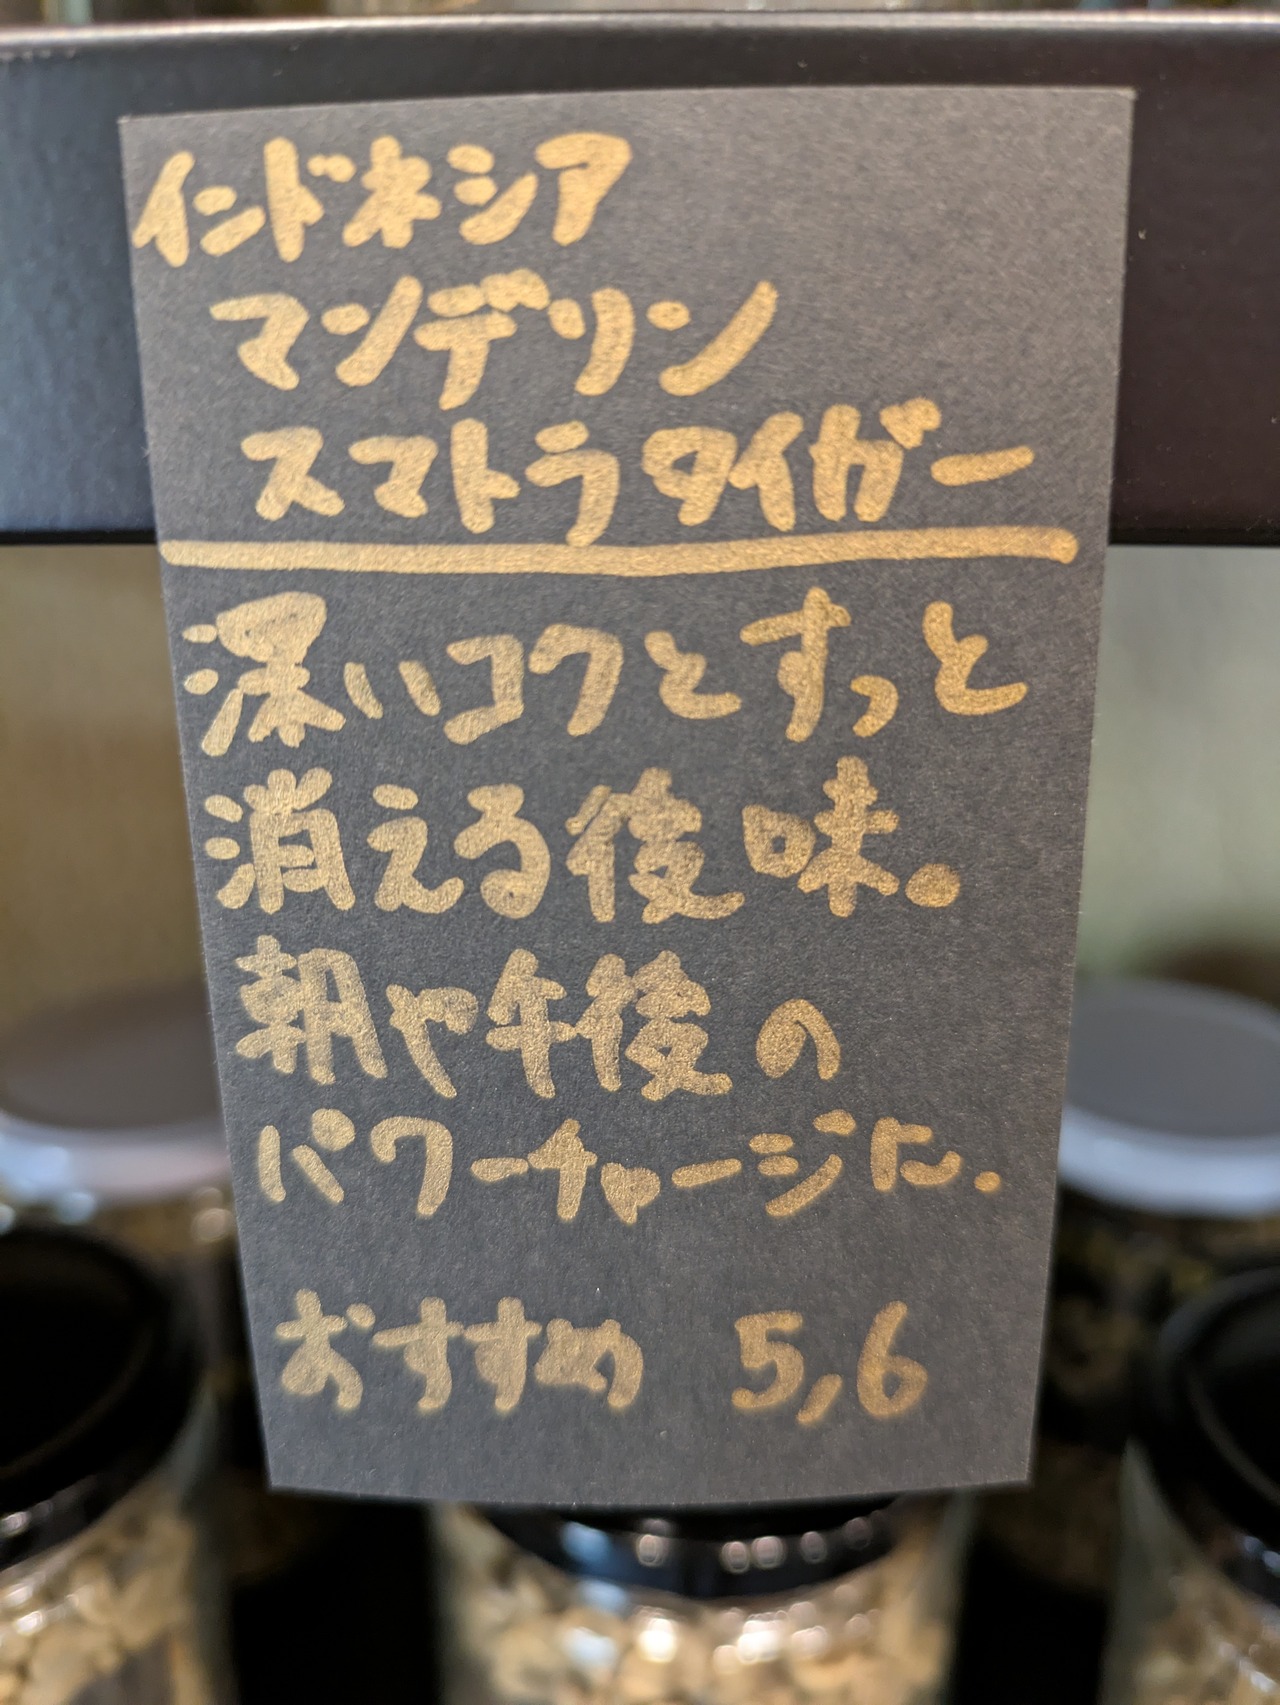 インドネシア
マンデリン
スマトラタイガー
深いコクとすっと
消える後味。
朝や午後の
パワーチャージに.
おすすめ 5,6